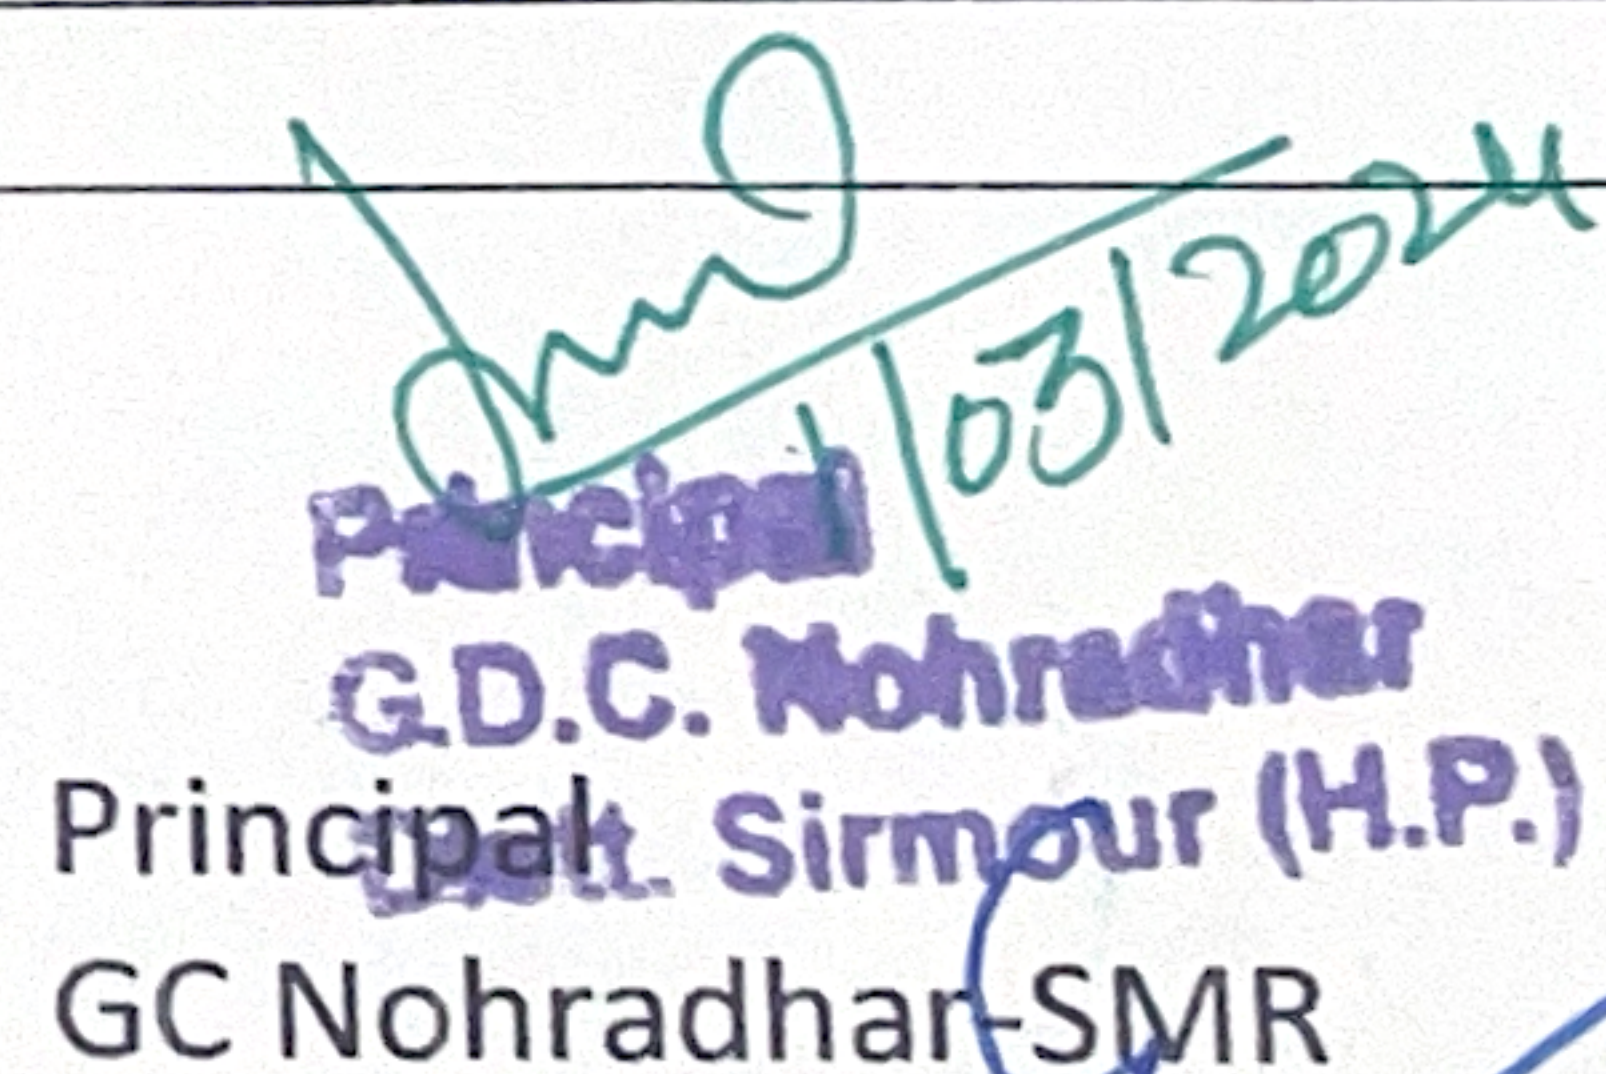 1/03/2024
Principal
G.D.C. Nohradhar
Distt. Sirmour (H.P.)
Principal
GC Nohradhar-SMR